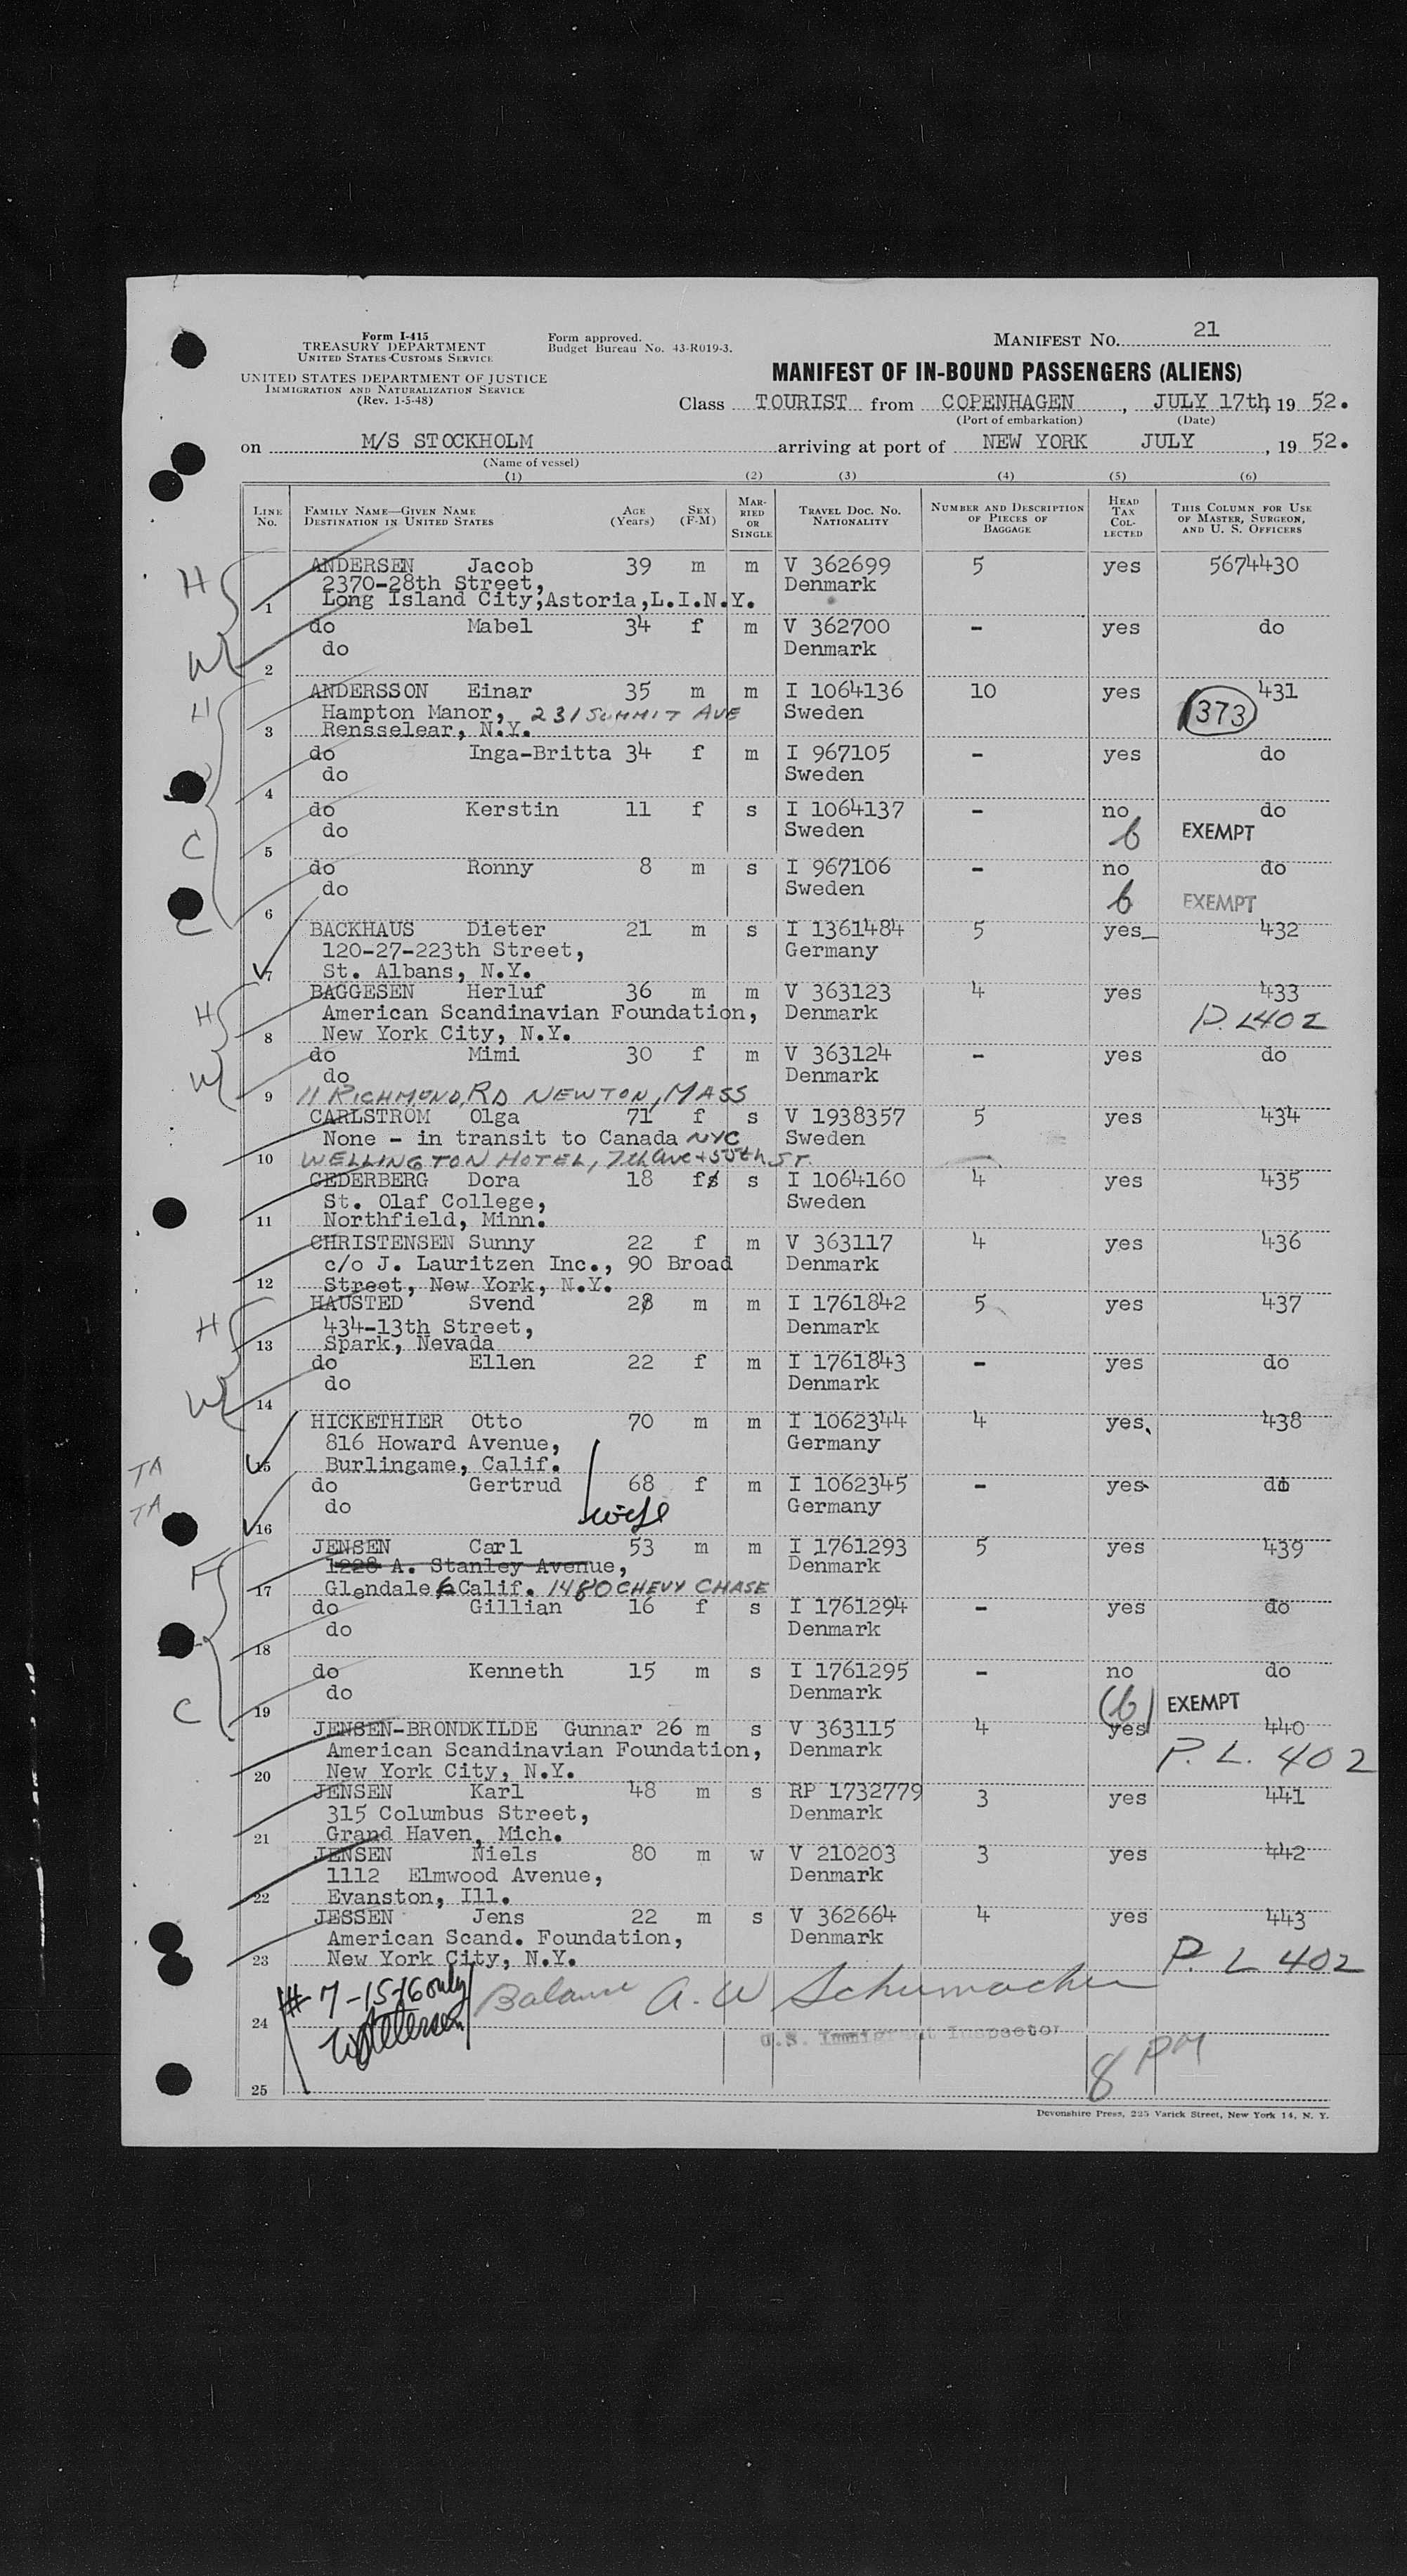 Form I-415
TREASURY DEPARTMENT
UNITED STATES CUSTOMS SERVICE
UNITED STATES DEPARTMENT OF JUSTICE
IMMIGRATION AND NATURALIZATION SERVICE
(Rev. 1-5-48)
Form approved.
Budget Bureau No. 43-R019-3.
MANIFEST No. 21
MANIFEST OF IN-BOUND PASSENGERS (ALIENS)
Class TOURIST from COPENHAGEN, JULY 17th, 1952.
(Port of embarkation) (Date)
on M/S STOCKHOLM arriving at port of NEW YORK JULY, 1952.
(Name of vessel)
(1) (2) (3) (4) (5) (6)
LINE No. FAMILY NAME—GIVEN NAME DESTINATION IN UNITED STATES AGE (Years) SEX (F-M) MARRIED OR SINGLE TRAVEL DOC. NO. NATIONALITY NUMBER AND DESCRIPTION OF PIECES OF BAGGAGE HEAD TAX COLLECTED THIS COLUMN FOR USE OF MASTER, SURGEON, AND U. S. OFFICERS
H ANDERSEN Jacob 39 m m V 362699 5 yes 5674430
2370-28th Street, Denmark
1 Long Island City,Astoria,L.I.N.Y.
W do Mabel 34 f m V 362700 - yes do
do Denmark
2
H ANDERSSON Einar 35 m m I 1064136 10 yes 431
Hampton Manor, 231 SUMMIT AVE Sweden 373
3 Rensselear, N.Y.
do Inga-Britta 34 f m I 967105 - yes do
do Sweden
4
do Kerstin 11 f s I 1064137 - no do
C do Sweden 6 EXEMPT
5
do Ronny 8 m s I 967106 - no do
do Sweden 6 EXEMPT
6 C
BACKHAUS Dieter 21 m s I 1361484 5 yes 432
120-27-223th Street, Germany
7 St. Albans, N.Y.
H BAGGESEN Herluf 36 m m V 363123 4 yes 433
American Scandinavian Foundation, Denmark P.L402
8 New York City, N.Y.
W do Mimi 30 f m V 363124 - yes do
do Denmark
9 11 RICHMOND, RD NEWTON, MASS
CARLSTRÖM Olga 71 f s V 1938357 5 yes 434
None - in transit to Canada NYC Sweden
10 WELLINGTON HOTEL, 7th Ave + 55th ST.
CEDERBERG Dora 18 fs s I 1064160 4 yes 435
St. Olaf College, Sweden
11 Northfield, Minn.
CHRISTENSEN Sunny 22 f m V 363117 4 yes 436
c/o J. Lauritzen Inc., 90 Broad Denmark
12 Street, New York, N.Y.
H HAUSTED Svend 28 m m I 1761842 5 yes 437
434-13th Street, Denmark
13 Spark, Nevada
W do Ellen 22 f m I 1761843 - yes do
do Denmark
14
HICKETHIER Otto 70 m m I 1062344 4 yes 438
816 Howard Avenue, Germany
TA 15 Burlingame, Calif.
do Gertrud 68 f m I 1062345 - yes do
TA do wife Germany
16
F JENSEN Carl 53 m m I 1761293 5 yes 439
1228 A. Stanley Avenue, Denmark
17 Glendale 6 Calif. 1480 CHEVY CHASE
do Gillian 16 f s I 1761294 - yes do
do Denmark
18
do Kenneth 15 m s I 1761295 - no do
C do Denmark (6) EXEMPT
19
JENSEN-BRONDKILDE Gunnar 26 m s V 363115 4 yes 440
American Scandinavian Foundation, Denmark P. L. 402
20 New York City, N.Y.
JENSEN Karl 48 m s RP 1732779 3 yes 441
315 Columbus Street, Denmark
21 Grand Haven, Mich.
JENSEN Niels 80 m w V 210203 3 yes 442
1112 Elmwood Avenue, Denmark
22 Evanston, Ill.
JESSEN Jens 22 m s V 362664 4 yes 443
American Scand. Foundation, Denmark
23 New York City, N.Y. P. L 402
# 7-15-16 only Balance A. W Schumacher
24
U.S. Immigrant Inspector
8 PM
25
Devonshire Press, 225 Varick Street, New York 14, N. Y.